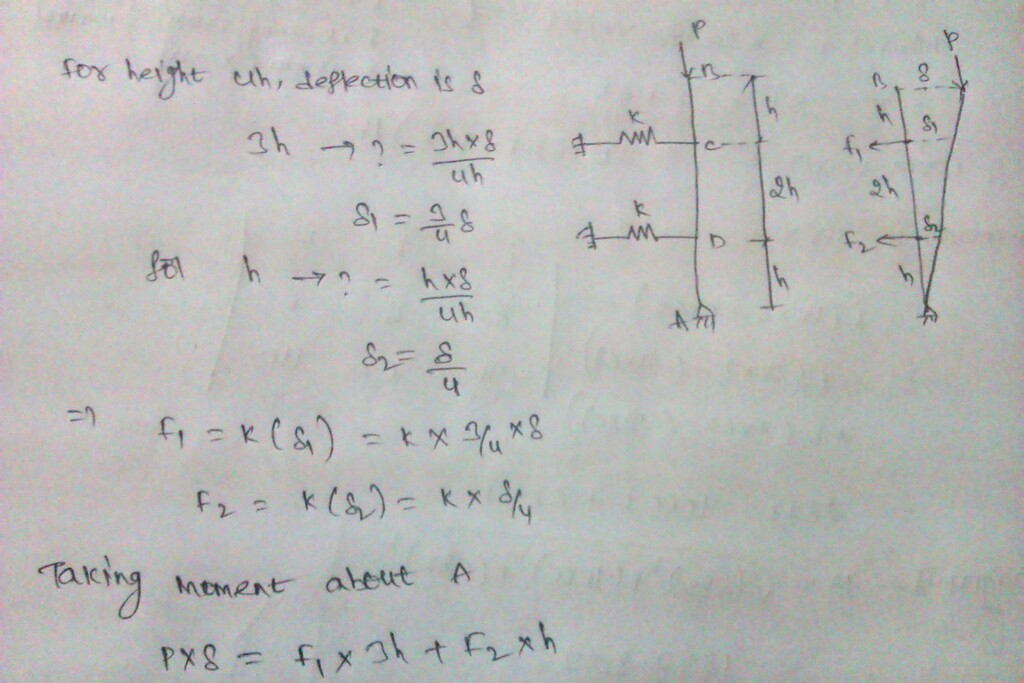 for height 4h, deflection is δ
3h → ? = 3h×δ / 4h
δ1 = 3/4 δ
for h → ? = h×δ / 4h
δ2 = δ/4
⇒ f1 = K(δ1) = K × 3/4 × δ
F2 = K(δ2) = K × δ/4
Taking moment about A
P×δ = f1 × 3h + F2 × h
P
B
h
K
C
2h
K
D
h
A
P
B δ
h
δ1
f1
2h
δ2
F2
h